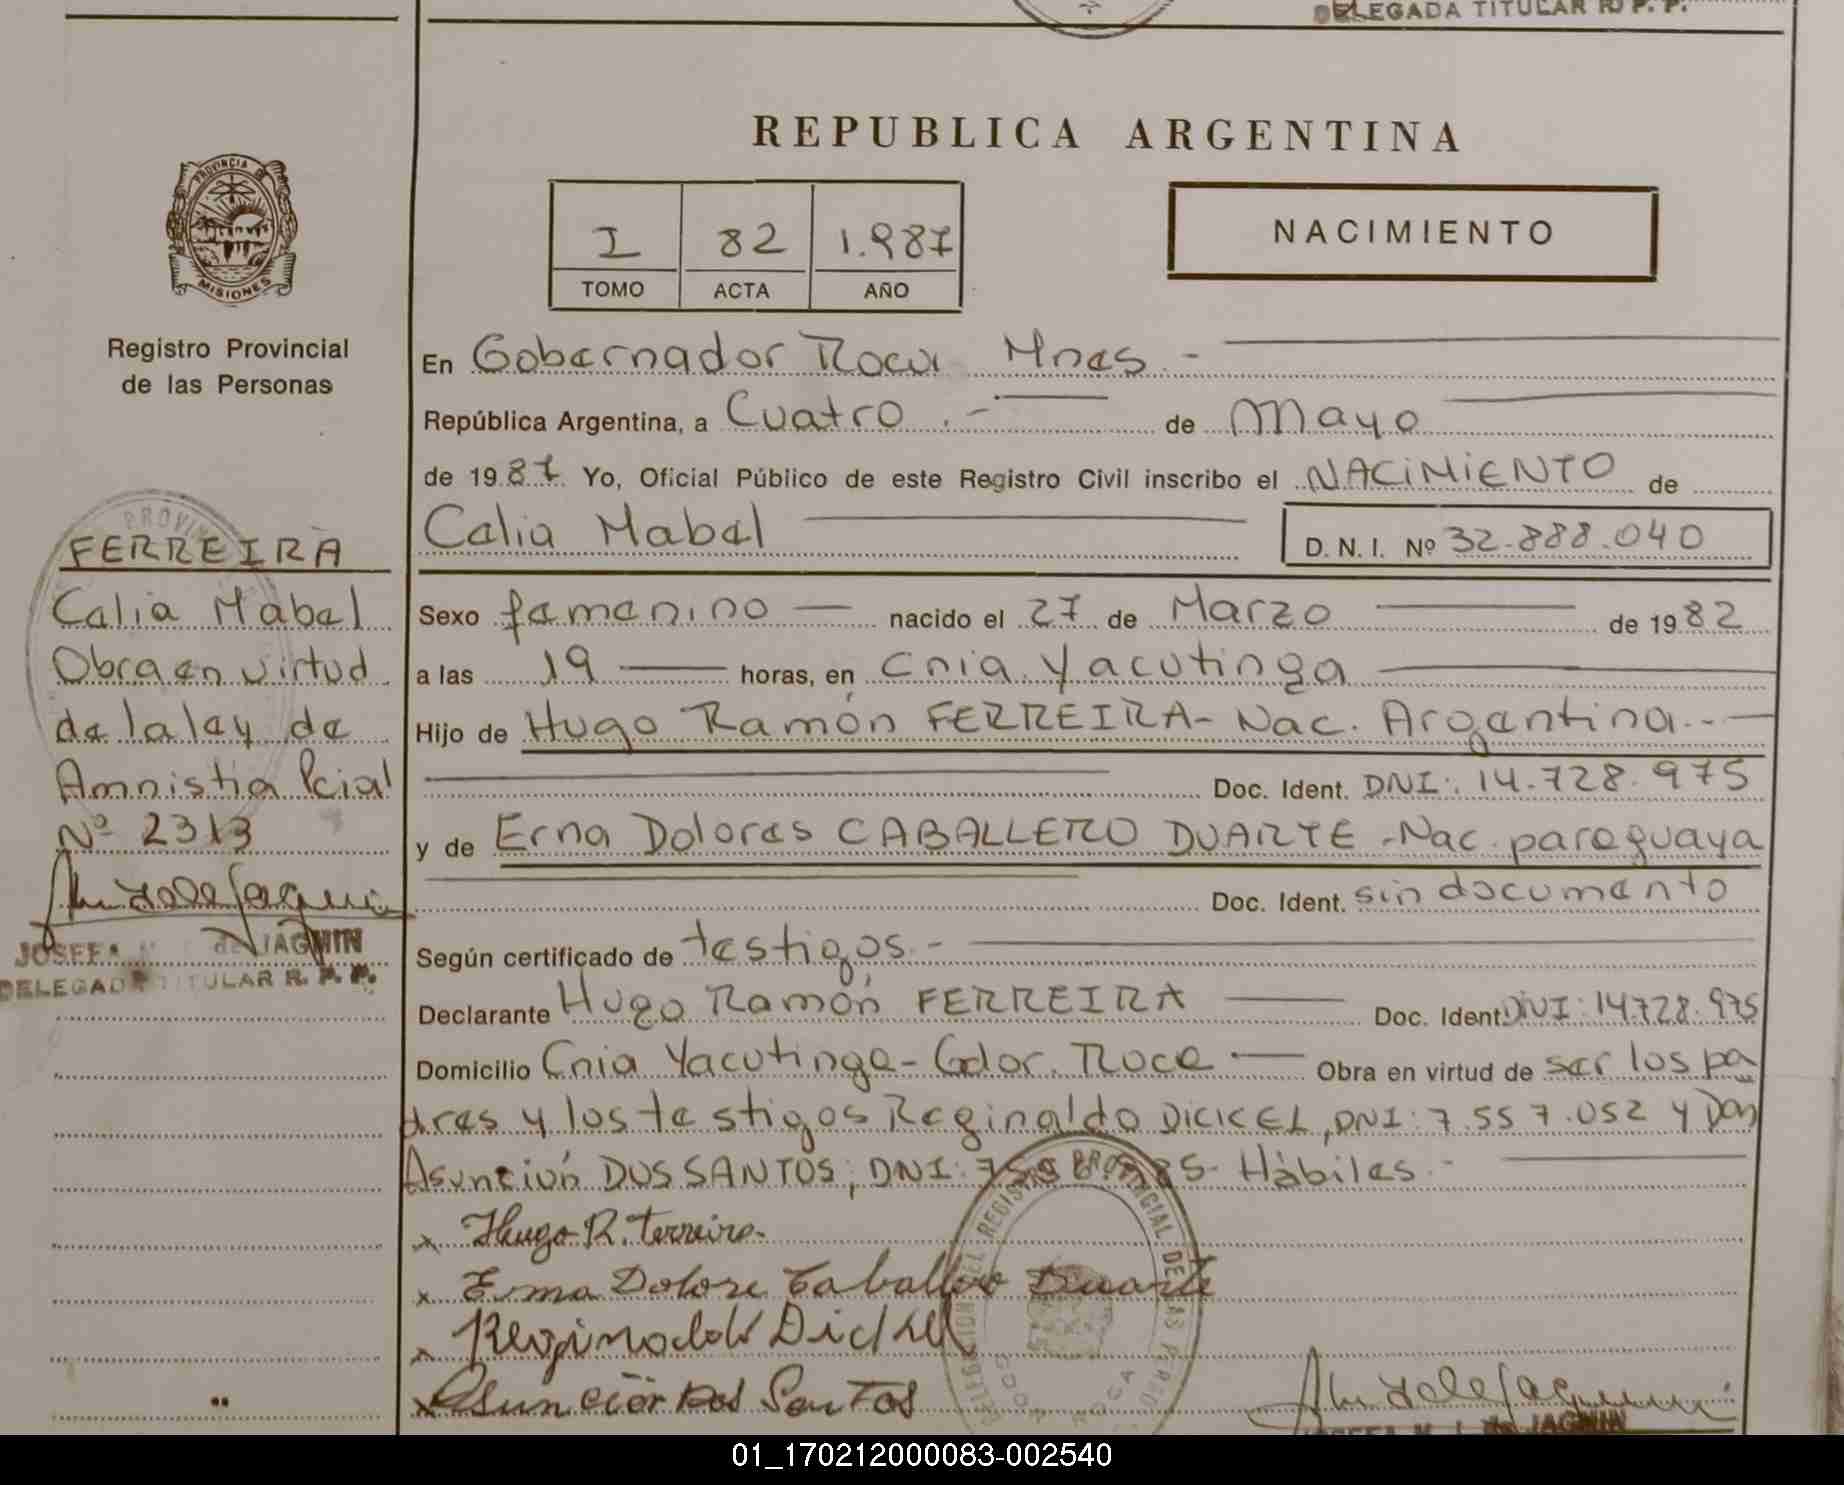 DELEGADA TITULAR R. P. P.
REPUBLICA ARGENTINA
PROVINCIA DE
MISIONES
Registro Provincial
de las Personas
I 82 1.987
TOMO ACTA AÑO
NACIMIENTO
En Gobernador Roca Mnes -
República Argentina, a Cuatro .- de Mayo
de 1987 Yo, Oficial Público de este Registro Civil inscribo el NACIMIENTO de
Celia Mabel
D. N. I. Nº 32.888.040
FERREIRA
Celia Mabel
Obra en virtud
de la ley de
Amnistia Pcial
Nº 2313
JOSEFA de JAGMIN
DELEGADA TITULAR R. P. P.
Sexo femenino nacido el 27 de Marzo de 1982
a las 19 horas, en Cnia Yacutinga
Hijo de Hugo Ramón FERREIRA - Nac. Argentina.-
Doc. Ident. DNI: 14.728.975
y de Erna Dolores CABALLERO DUARTE - Nac. paraguaya
Doc. Ident. sin documento
Según certificado de testigos.-
Declarante Hugo Ramón FERREIRA Doc. Ident. DNI: 14.728.975
Domicilio Cnia Yacutinga - Gdor. Roca Obra en virtud de ser los pa
dres y los testigos Reginaldo DICKEL, DNI: 7.557.052 y Don
Asunción DOS SANTOS; DNI: Hábiles.-
x Hugo R. Ferreira.
x Erna Dolore Caballero Duarte
x Reginaldo Dickel
x Asunción Dos Santos
DELEGACION DEL REGISTRO PROVINCIAL DE LAS PERSO
GDOR ROCA
de JAGMIN
01_170212000083-002540